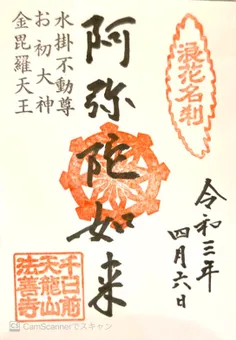 浪花名刹
水掛不動尊
お初大神
金毘羅天王
阿弥陀如来
令和三年
四月六日
千日前
天龍山
法善寺
CamScannerでスキャン